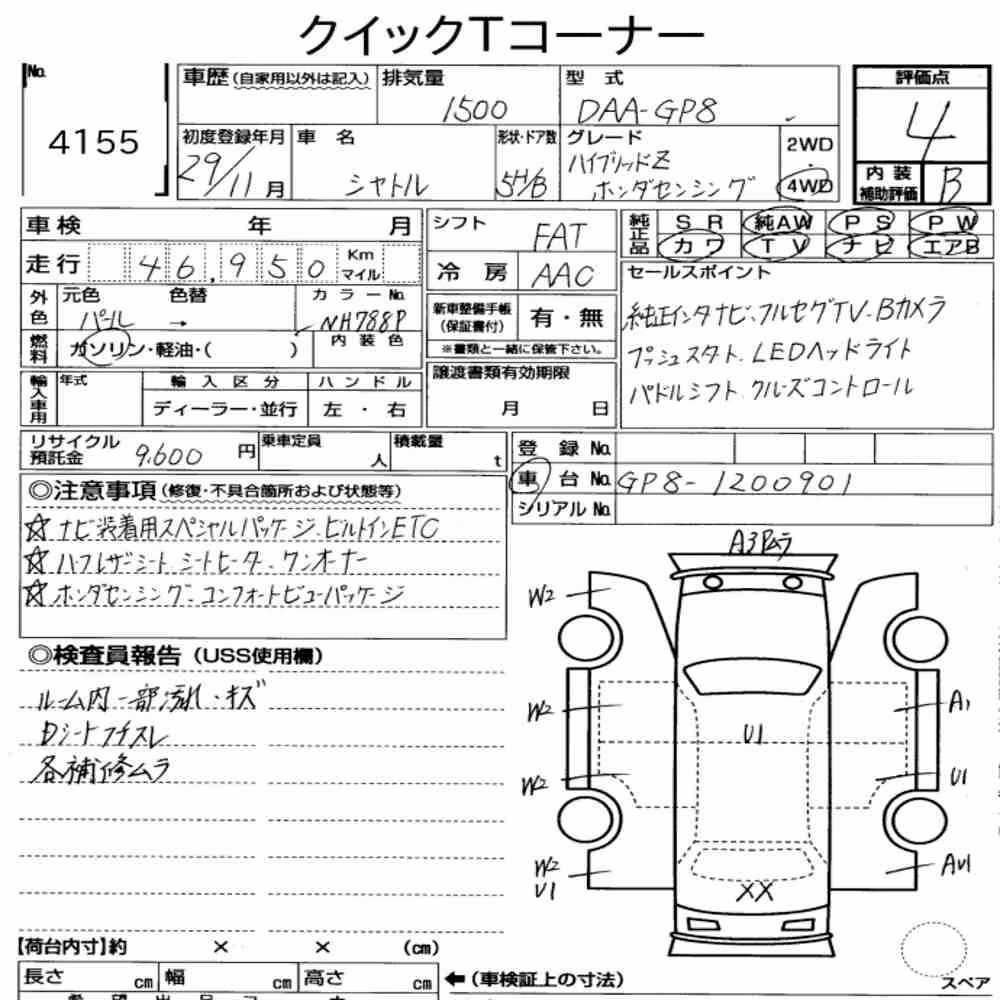 クイックTコーナー
No.
4155
車歴(自家用以外は記入)
排気量
1500
型 式
DAA-GP8
評価点
4
初度登録年月
29/11月
車 名
シャトル
形状・ドア数
5H/B
グレード
ハイブリッドZ
ホンダセンシング
2WD
・
4WD
内装
補助評価
B
車検 年 月
シフト
FAT
純正品
SR 純AW PS PW
カワ TV ナビ エアB
走行
46,950
Km
マイル
冷 房
AAC
セールスポイント
外色
元色 色替
パール →
カラーNo.
NH788P
新車整備手帳
(保証書付)
有・無
純正インタナビ、フルセグTV、Bカメラ
燃料
ガソリン・軽油・( )
内装色
※書類と一緒に保管下さい。
プッシュスタート、LEDヘッドライト
輸入車用
年式
輸入区分
ハンドル
譲渡書類有効期限
パドルシフト クルーズコントロール
ディーラー・並行
左・右
月 日
リサイクル
預託金
9,600円
乗車定員
人
積載量
t
登 録 No.
車 台 No.
GP8-1200901
シリアルNo.
◎注意事項(修復・不具合箇所および状態等)
☆ナビ装着用スペシャルパッケージ、ビルトインETC
☆ハーフレザーシート、シートヒーター、ワンオーナー
☆ホンダセンシング、コンフォートビューパッケージ
A3 Pムラ
W2
◎検査員報告(USS使用欄)
ルーム内一部汚れ・キズ
Dシートフチスレ
各補修ムラ
W2
A1
U1
W2
U1
W2
U1
AU1
XX
【荷台内寸】約 × × (cm)
長さ cm
幅 cm
高さ cm
←(車検証上の寸法)
スペア